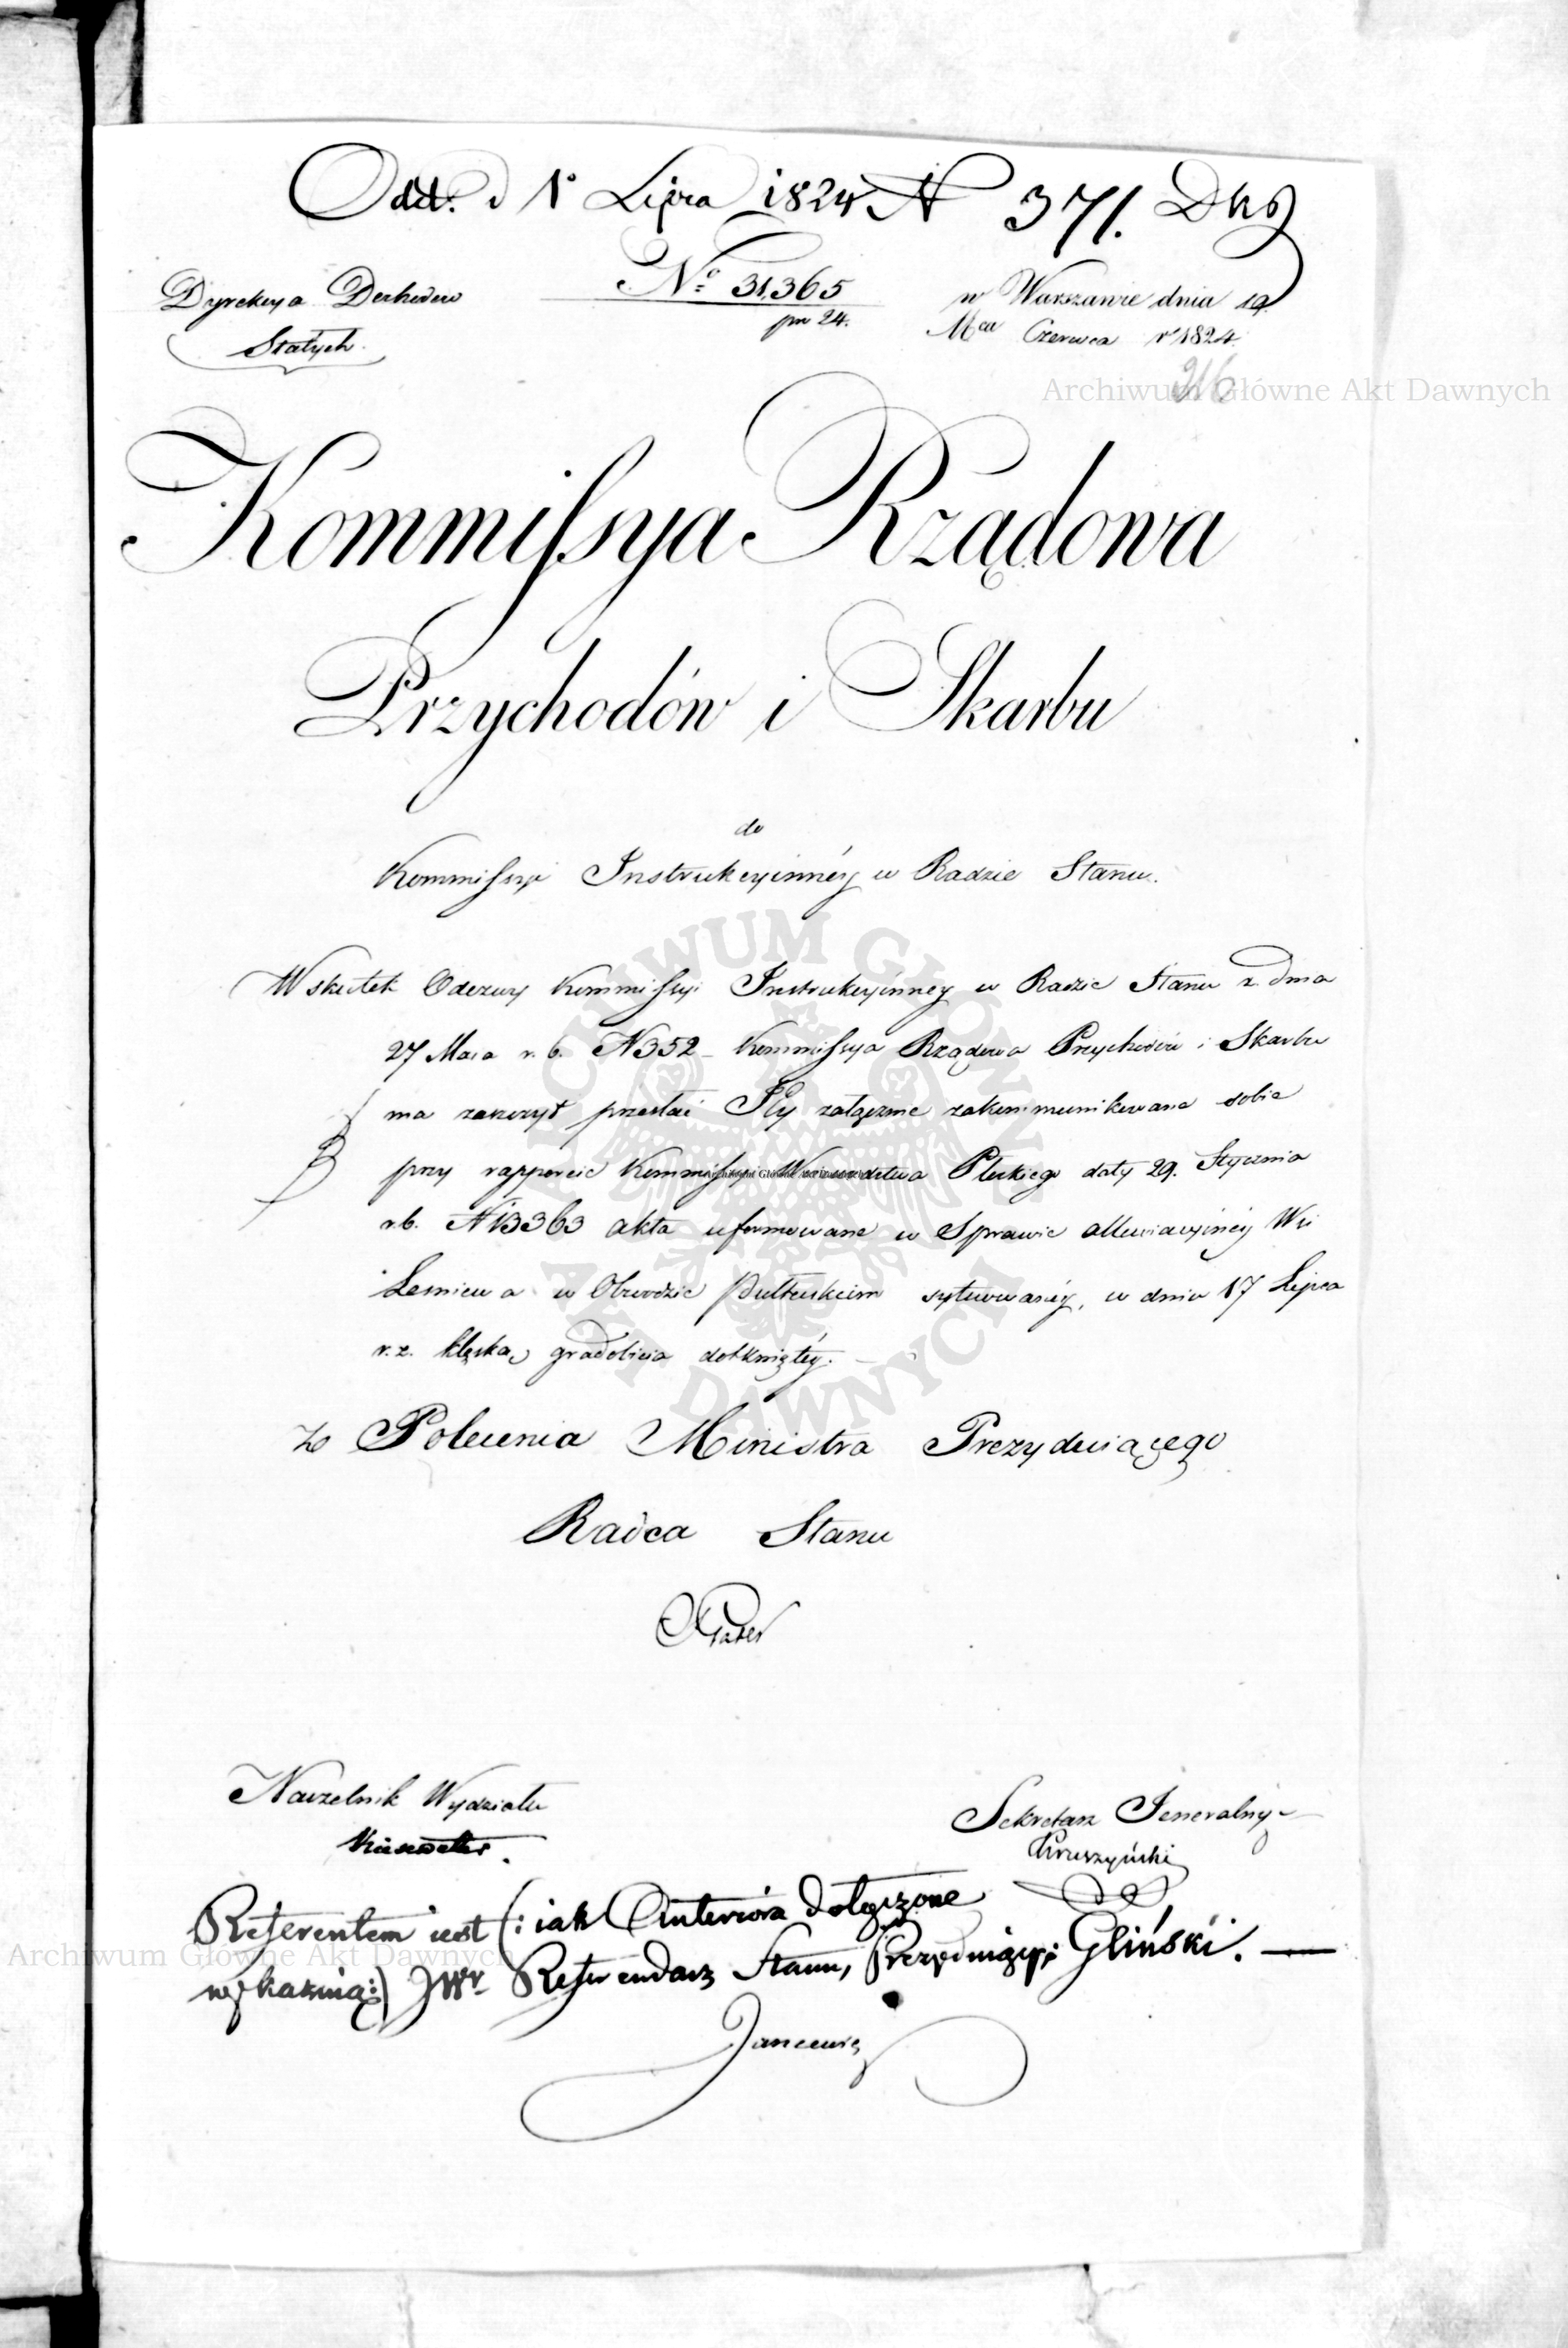 Odd. d 1º Lipca 1824 N 371. DKS
Dyrekcya Dochodów
Stałych.
Nº 31,365
pn 24.
w Warszawie dnia 19.
Mca Czerwca r 1824.
216
Archiwum Główne Akt Dawnych
Kommissya Rządowa
Przychodów i Skarbu
do
Kommissyi Instrukcyinnéy w Radzie Stanu.
Wskutek Odezwy Kommissyi Instrukcyinney w Radzie Stanu z dnia
27 Maia r. b. N 352 Kommissya Rządowa Przychodów i Skarbu
ma zaszczyt przesłać Jéy załączone zakommunikowane sobie
przy rapporcie Kommissyi Woiewództwa Płockiego daty 29. Stycznia
r.b. N 13363 akta uformowane w Sprawie alleviacyinéy Wsi
Lesniewa w Obwodzie Pułtuskim sytuowanéy, w dniu 17 Lipca
r.z. klęską gradobicia dotkniętéy. —
Z Polecenia Ministra Prezyduiącego
Radca Stanu
Plater
Naczelnik Wydziału
Sekretarz Jeneralny
Kruszyński
Referentem iest (: iak Anteriora dołączone
wykazuią :) JWr Referendarz Stanu, Prezyduiący Gliński. —
Jancewicz
ARCHIWUM GŁÓWNE AKT DAWNYCH
Archiwum Główne Akt Dawnych